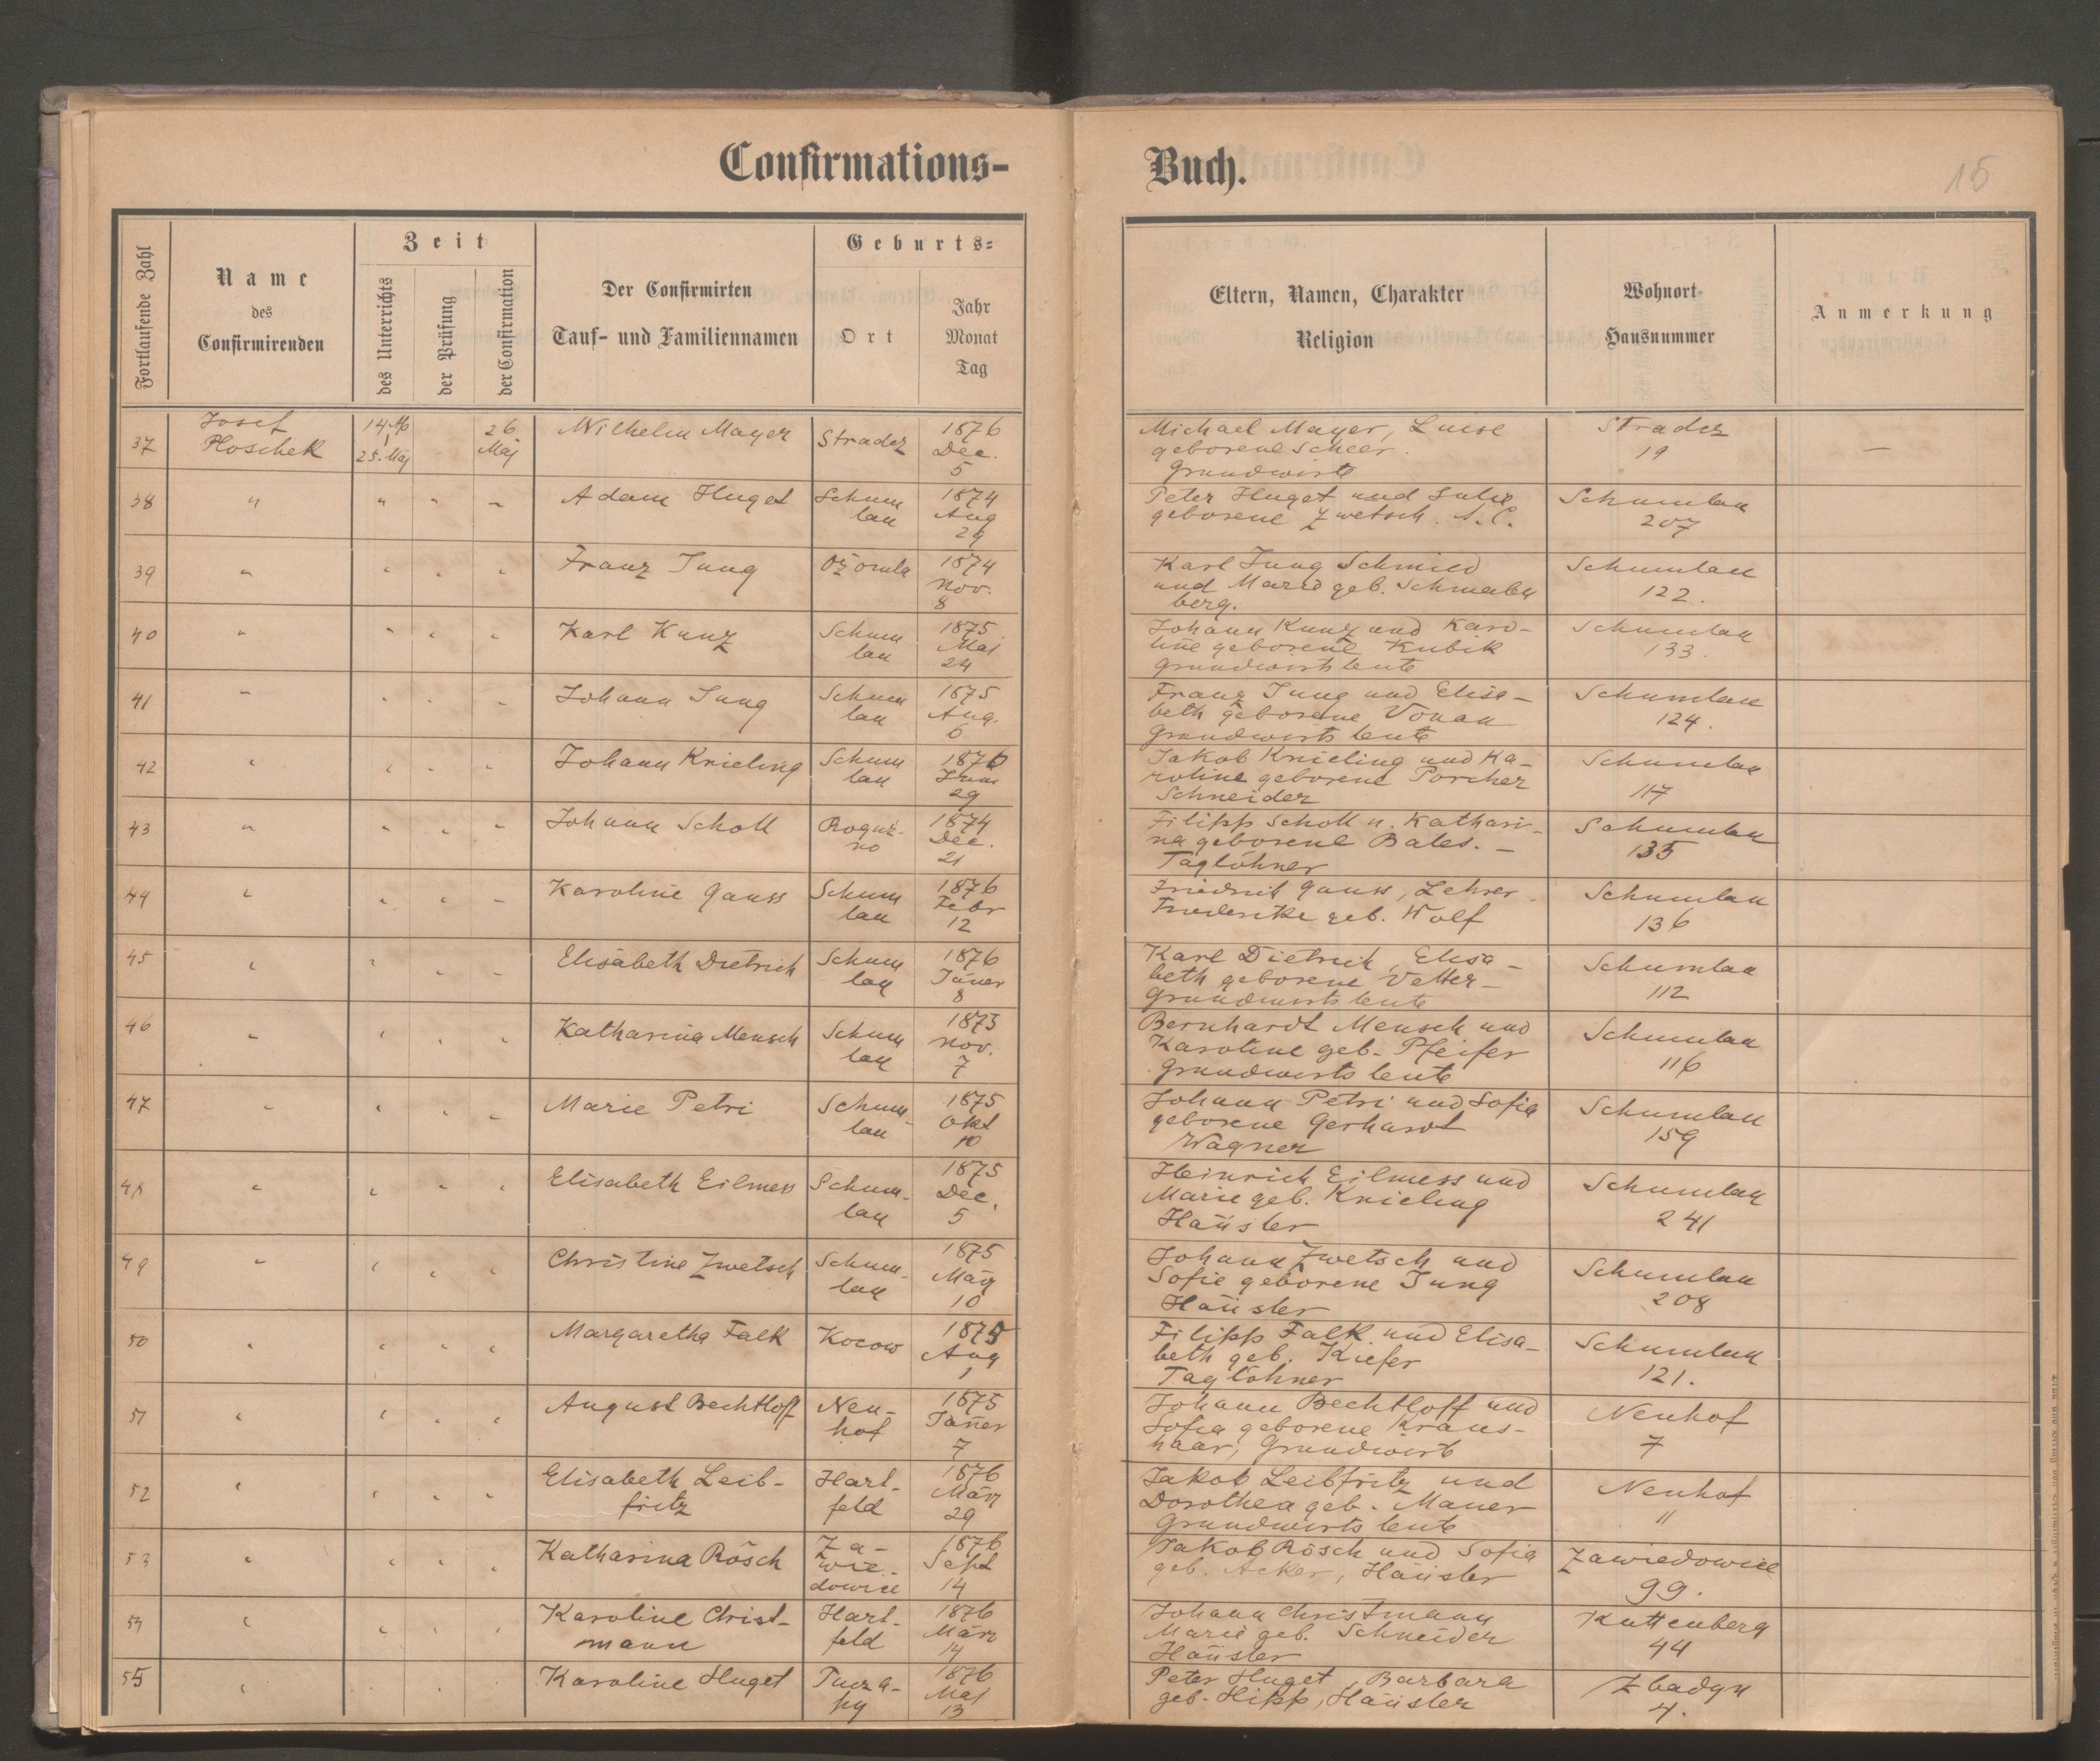 Confirmations-
Buch.
15
Fortlaufende Zahl
Name
des
Confirmirenden
Zeit
des Unterrichts
der Prüfung
der Confirmation
Der Confirmirten
Tauf- und Familiennamen
Geburts-
Ort
Jahr
Monat
Tag
Eltern, Namen, Charakter
Religion
Wohnort
Hausnummer
Anmerkung
37
Josef
Ploschek
25. Mai
26
Mai
Wilhelm Mayer
Stradcz
1876
Dec.
5
Michael Mayer, Luise
geborene Scheer.
Grundwirte
Stradcz
19
—
38
Adam Huget
Schum
lau
1874
Aug
29
Peter Huget und Julie
geborene Zwetsch. A.C.
Schumlau
207
39
Franz Jung
Ożomla
1874
Nov.
8
Karl Jung Schmied
und Marie geb.
berg.
Schumlau
122.
40
Karl Kunz
Schum
lau
1875
Mai
24
Johann Kunz und Karo-
line geborene Kubik
Grundwirtsleute
Schumlau
133.
41
Johann Jung
Schum
lau
1875
Aug.
6
Franz Jung und Elisa-
beth geborene Vonau
Grundwirtsleute
Schumlau
124.
42
Johann Knieling
Schum
lau
1876
Juni
29
Jakob Knieling und Ka-
roline geborene Porcher
Schneider
Schumlau
117
43
Johann Scholl
Roguz-
no
1874
Dec.
21
Filipp Scholl u. Kathari-
na geborene Bales. —
Taglöhner
Schumlau
135
44
Karoline Gauss
Schum
lau
1876
Febr
12
Friedrich Gauss, Lehrer.
Friederike geb. Wolf
Schumlau
136
45
Elisabeth Dietrich
Schum
lau
1876
Jäner
8
Karl Dietrich, Elisa-
beth geborene Vetter-
Grundwirtsleute
Schumlau
112
46
Katharina Mensch
Schum
lau
1873
Nov.
7
Bernhardt Mensch und
Karoline geb. Pfeifer
Grundwirtsleute
Schumlau
116
47
Marie Petri
Schum-
lau
1875
Okt
10
Johann Petri und Sofia
geborene Gerhardt
Wagner
Schumlau
159
48
Elisabeth Eilmess
Schum-
lau
1875
Dec.
5
Heinrich Eilmess und
Marie geb. Knieling
Häusler
Schumlau
241
49
Christine Zwetsch
Schum-
lau
1875
März
10
Johann Zwetsch und
Sofie geborene Jung
Häusler
Schumlau
208
50
Margaretha Falk
Kocow
1875
Aug
1
Filipp Falk und Elisa-
beth geb. Kiefer
Taglöhner
Schumlau
121.
51
August Bechtloff
Neu-
hof
1875
Jäner
7
Johann Bechtloff und
Sofia geborene Kraus-
haar, Grundwirt
Neuhof
7
52
Elisabeth Leib-
fritz
Hart-
feld
1876
März
29
Jakob Leibfritz und
Dorothea geb. Mauer
Grundwirtsleute
Neuhof
11
53
Katharina Rösch
Za-
wie-
dowice
1876
Sept
14
Jakob Rösch und Sofia
geb. Acker, Häusler
Zawiedowice
99.
54
Karoline Christ-
mann
Hart-
feld
1876
März
14
Johann Christmann
Marie geb. Schneider
Häusler
Kuttenberg
44
55
Karoline Huget
Tucza-
py
1876
Mai
13
Peter Huget, Barbara
geb. Hipp, Häusler
Zbadyn
4.